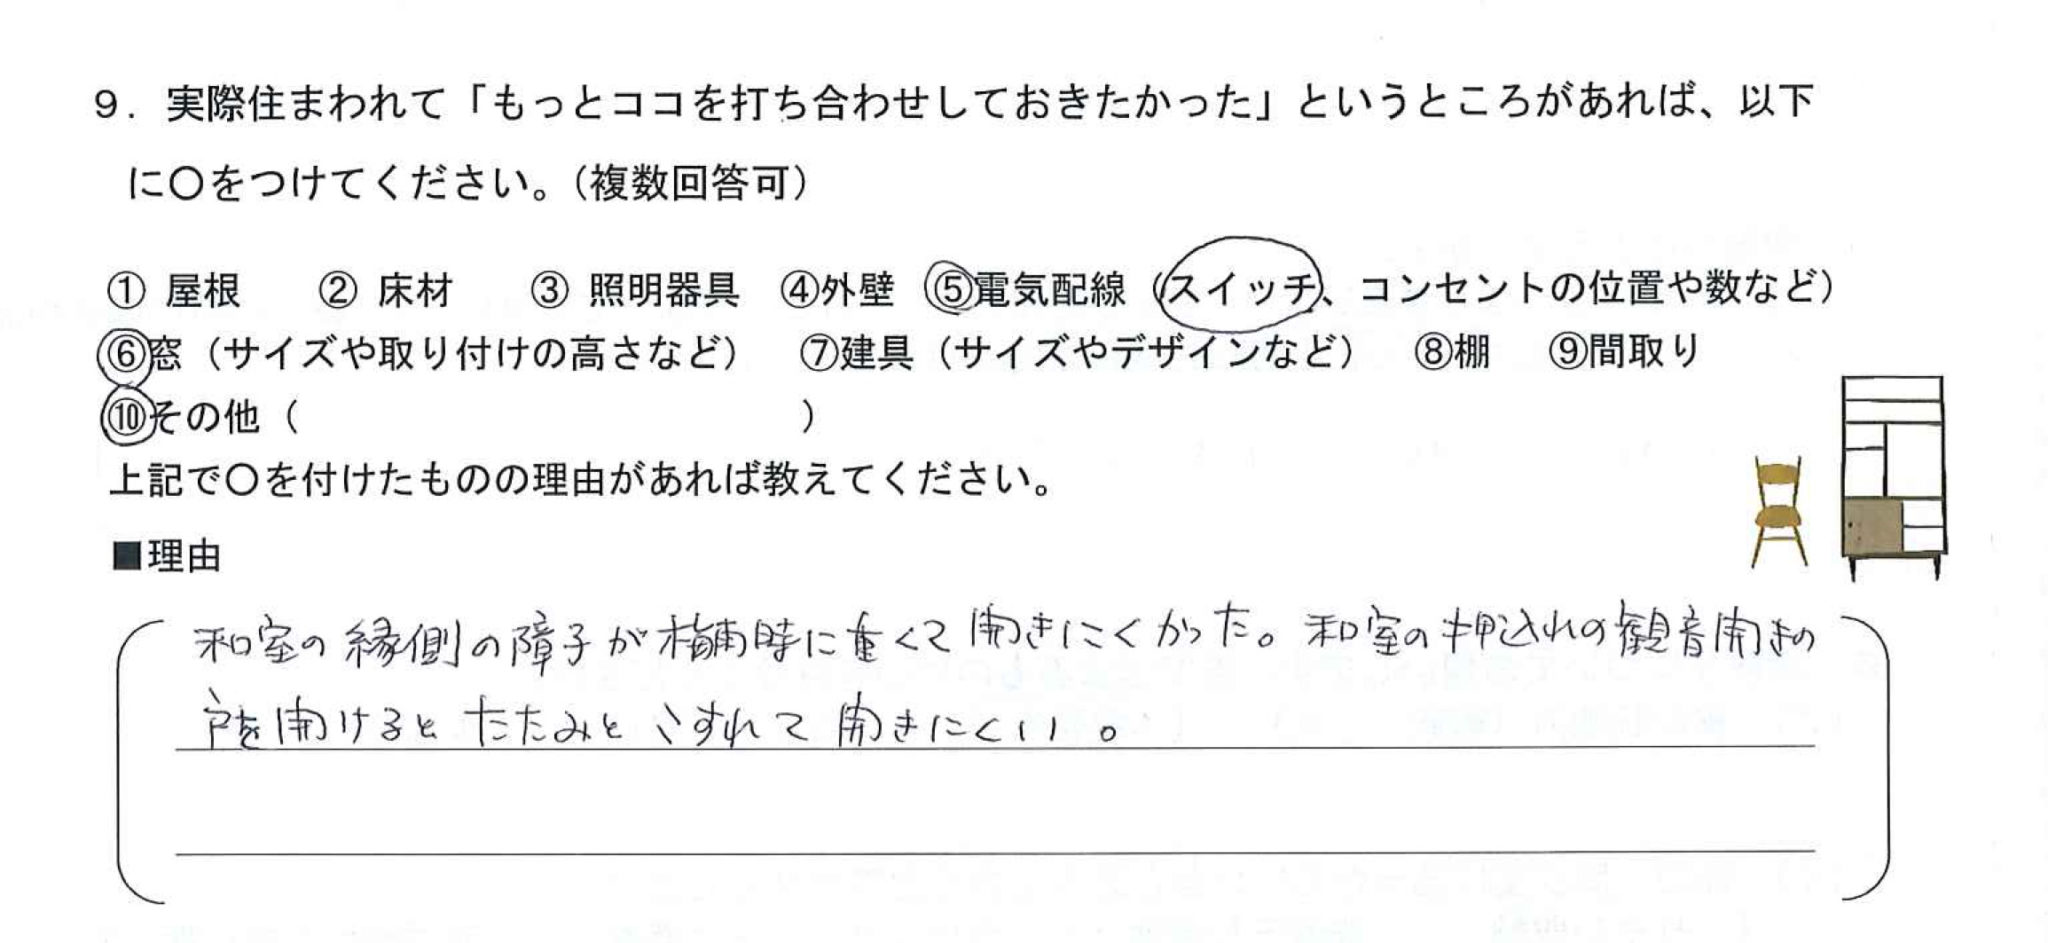 9．実際住まわれて「もっとココを打ち合わせしておきたかった」というところがあれば、以下
に〇をつけてください。（複数回答可）
① 屋根　② 床材　③ 照明器具　④外壁　⑤電気配線（スイッチ、コンセントの位置や数など）
⑥窓（サイズや取り付けの高さなど）　⑦建具（サイズやデザインなど）　⑧棚　⑨間取り
⑩その他（　　　　　　　　　　　　　）
上記で〇を付けたものの理由があれば教えてください。
■理由
和室の縁側の障子が梅雨時に重くて開きにくかった。和室の押込れの観音開きの
戸を開けるとたたみとこすれて開きにくい。